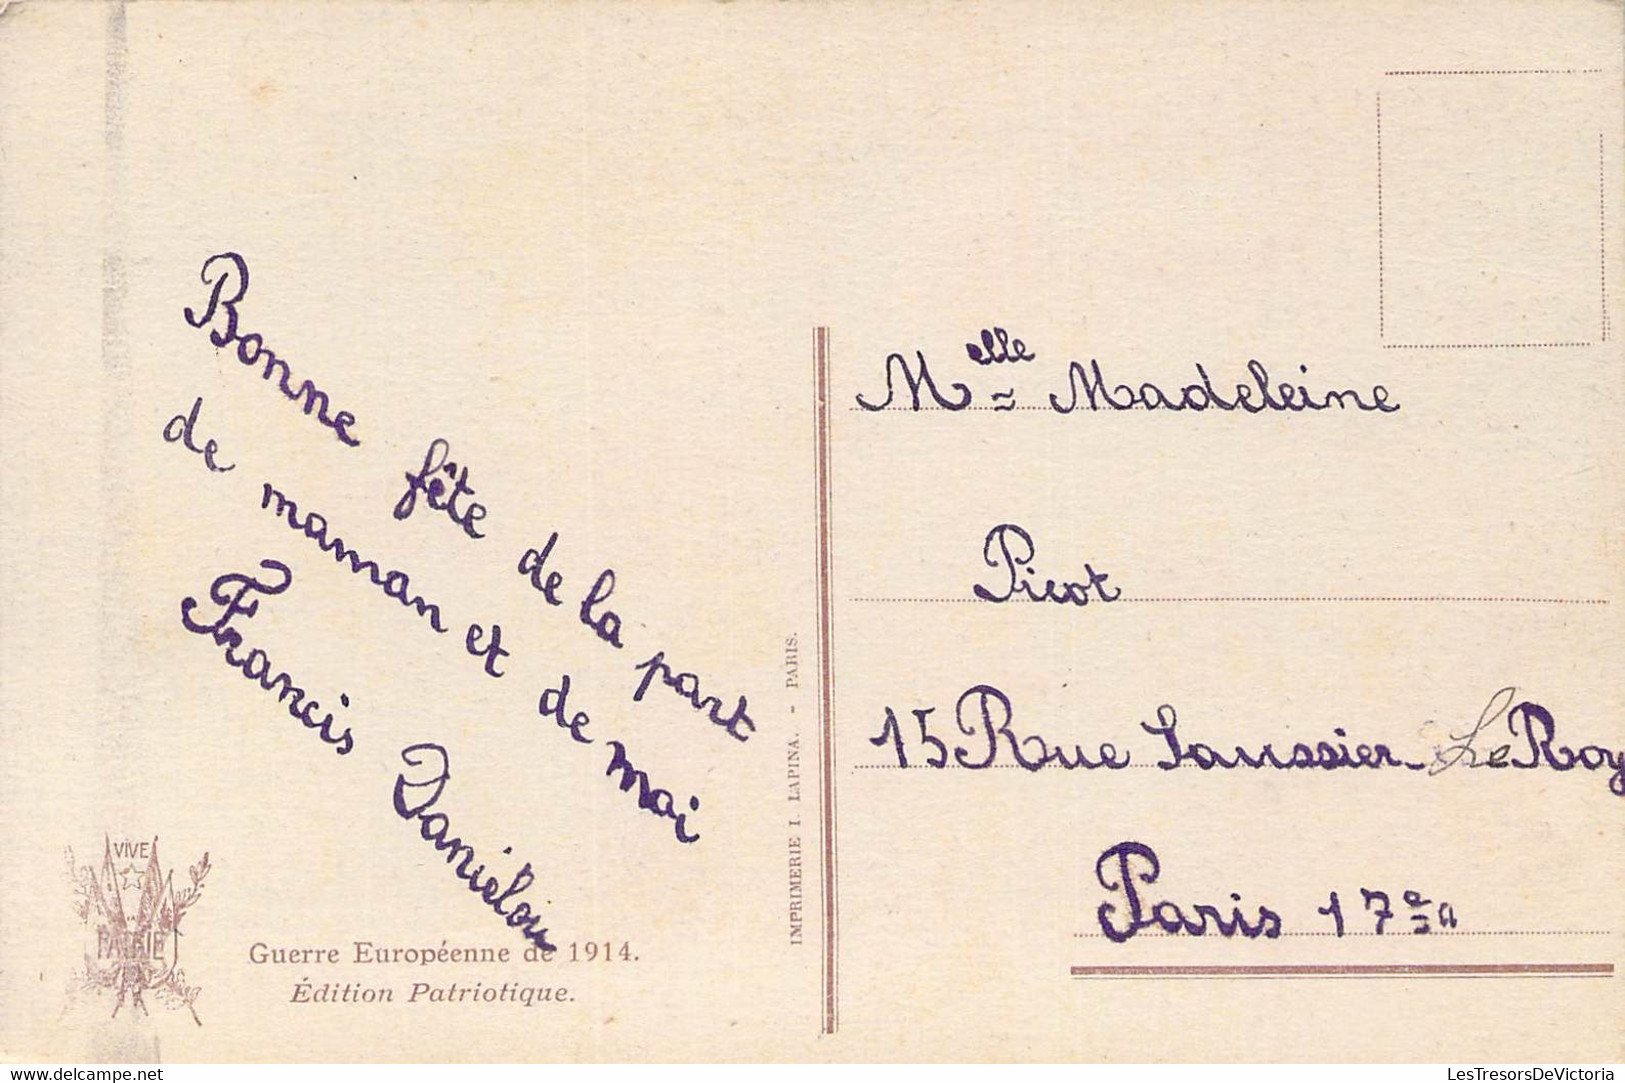 Bonne fête de la part
de maman et de moi
Francis Daniélou
VIVE
PATRIE
Guerre Européenne de 1914.
Édition Patriotique.
IMPRIMERIE I. LAPINA. - PARIS.
Melle Madeleine
Picot
15 Rue Saussier-LeRoy
Paris 17e
www.delcampe.net
LesTresorsDeVictoria